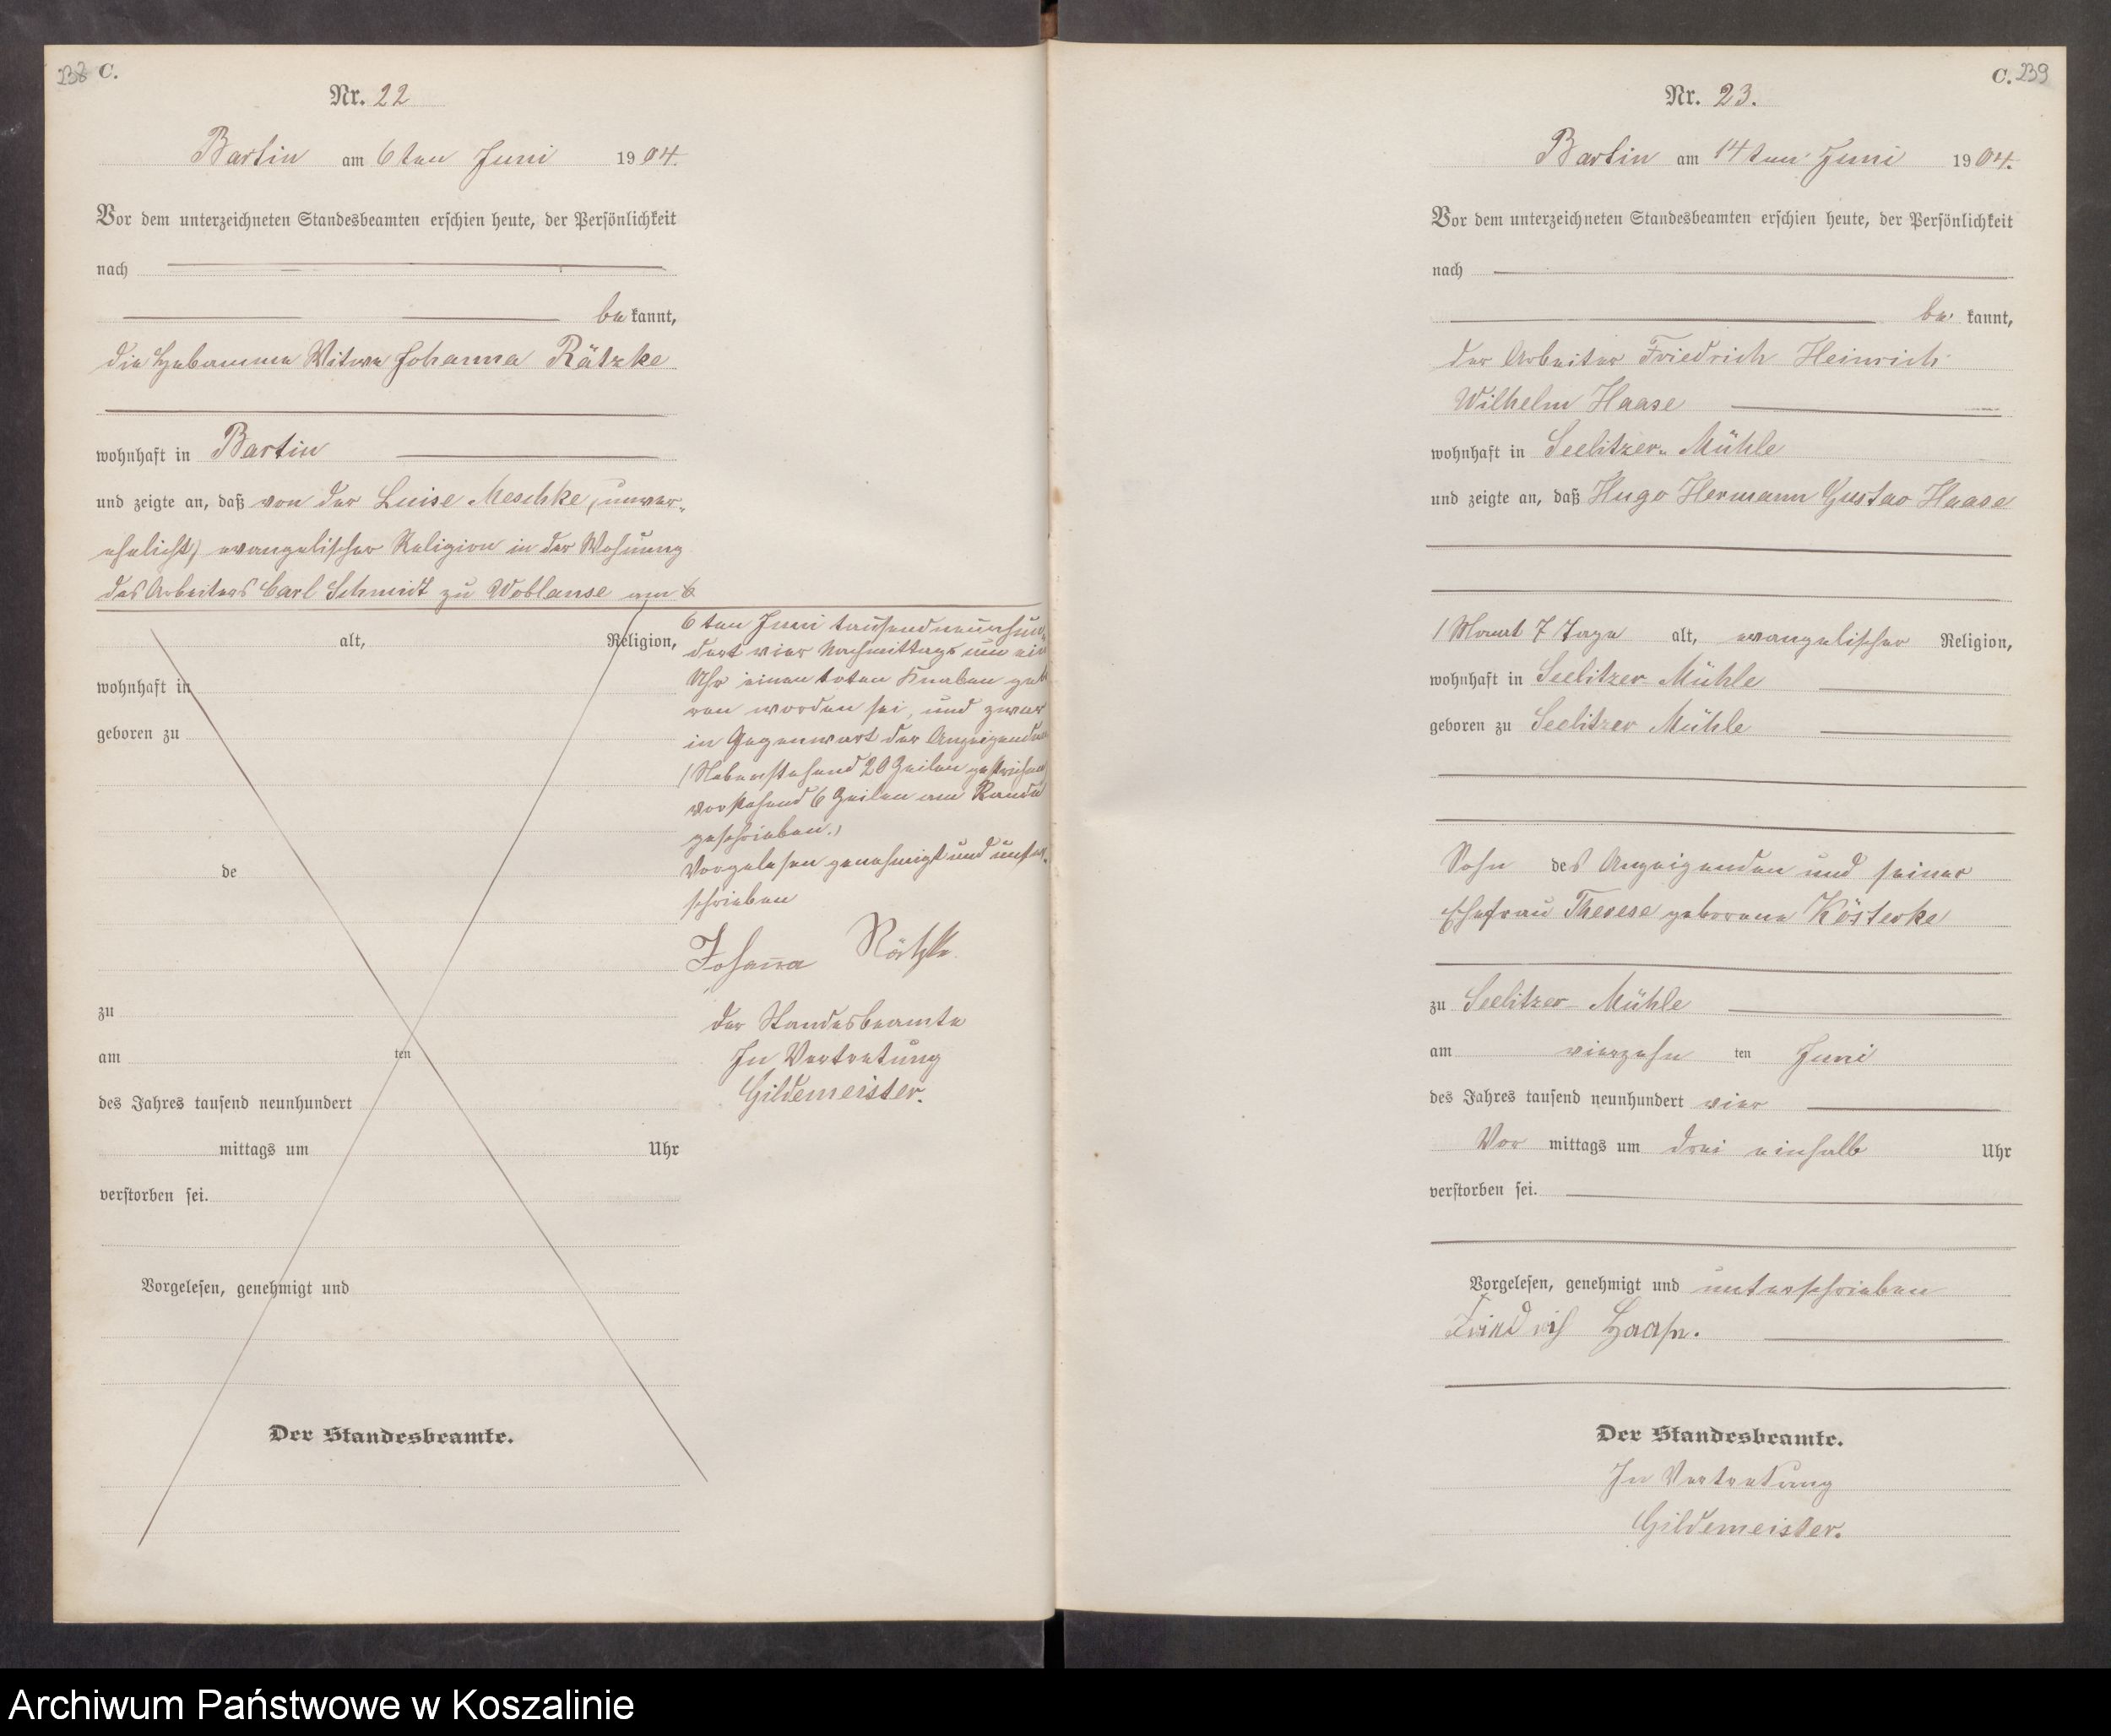 238 C.
Nr. 22
Bartin am 6ten Juni 1904.
Vor dem unterzeichneten Standesbeamten erschien heute, der Persönlichkeit
nach
be kannt,
die Hebamme Witwe Johanna Rätzke
wohnhaft in Bartin
und zeigte an, daß von der Luise Meschke, (unver-
ehelicht) evangelischer Religion in der Wohnung
des Arbeiters Carl Schmidt zu Woblanse am
alt, Religion,
wohnhaft in
geboren zu
de
zu
am ten
des Jahres tausend neunhundert
mittags um Uhr
verstorben sei.
Vorgelesen, genehmigt und
Der Standesbeamte.
6ten Juni tausendneunhun-
dert vier Nachmittags um ein
Uhr einen toten Knaben gebo
ren worden sei, und zwar
in Gegenwart der Anzeigenden
(Nebenstehend 20 Zeilen gestrichen
vorstehend 6 Zeilen am Rande
geschrieben.)
Vorgelesen genehmigt und unter-
schrieben
Johanna Rätzke.
der Standesbeamte
In Vertretung
Gildemeister.
C. 239
Nr. 23.
Bartin am 14ten Juni 1904.
Vor dem unterzeichneten Standesbeamten erschien heute, der Persönlichkeit
nach
be kannt,
der Arbeiter Friedrich Heinrich
Wilhelm Haase
wohnhaft in Seelitzer- Mühle
und zeigte an, daß Hugo Hermann Gustav Haase
1 Monat 7 Tage alt, evangelischer Religion,
wohnhaft in Seelitzer Mühle
geboren zu Seelitzer Mühle
Sohn des Anzeigenden und seiner
Ehefrau Therese geborene Kösterke
zu Seelitzer- Mühle
am vierzehn ten Juni
des Jahres tausend neunhundert vier
Vor mittags um drei einhalb Uhr
verstorben sei.
Vorgelesen, genehmigt und unterschrieben
Friedrich Haase.
Der Standesbeamte.
In Vertretung
Gildemeister.
Archiwum Państwowe w Koszalinie